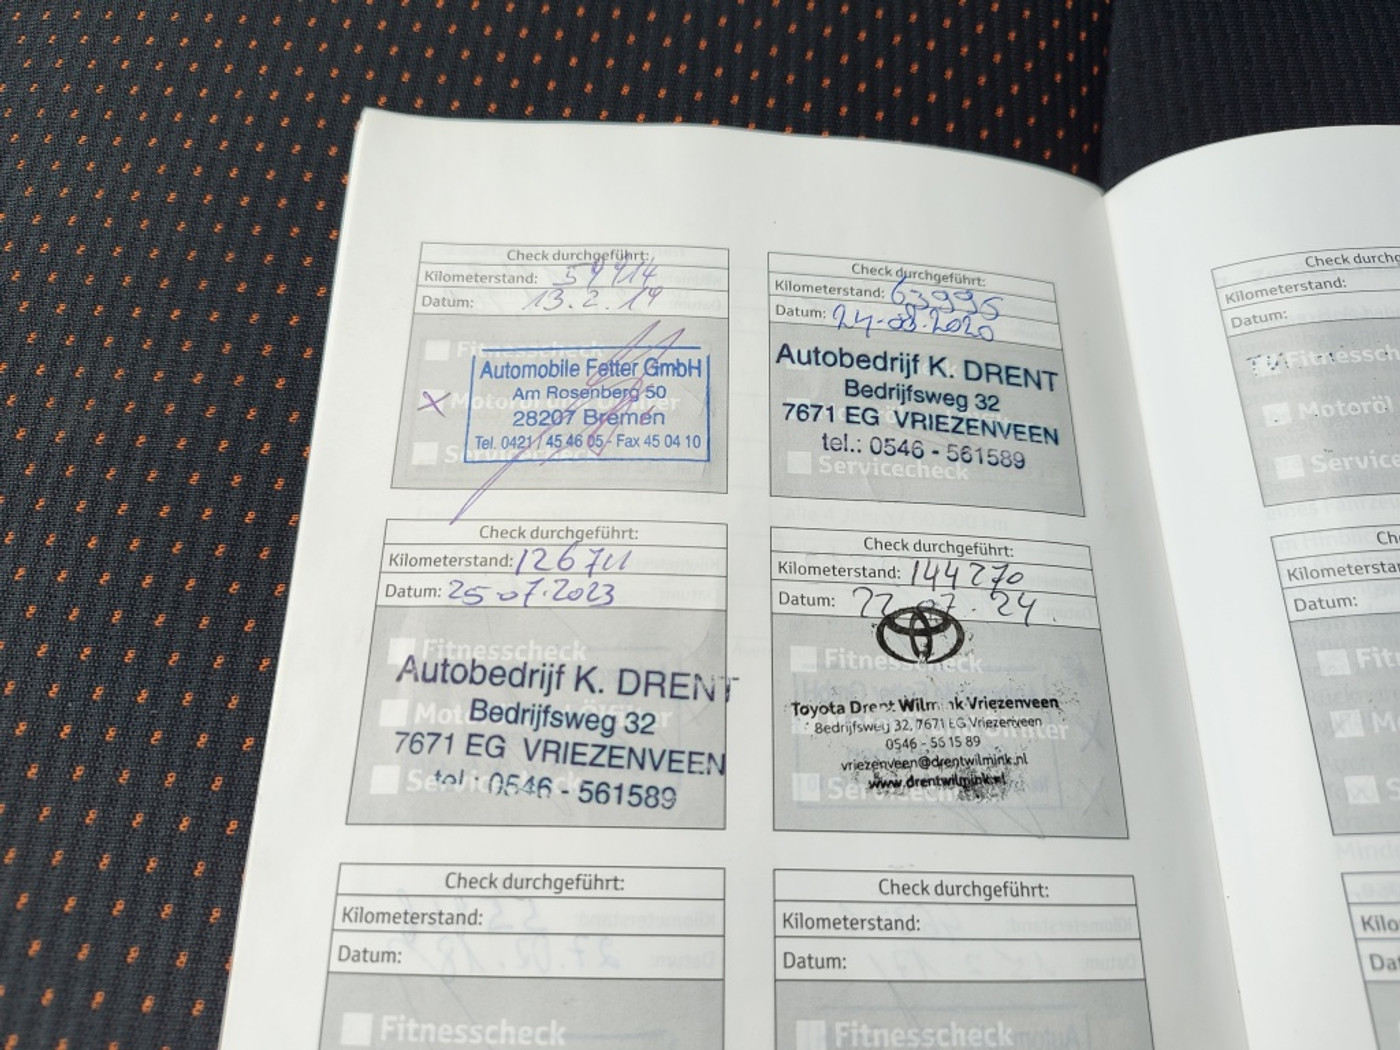 Check durchgeführt:
Kilometerstand: 59914
Datum: 13.2.19
Fitnesscheck
Automobile Fetter GmbH
Am Rosenberg 50
28207 Bremen
Tel. 0421 / 45 46 05 - Fax 45 04 10
Check durchgeführt:
Kilometerstand: 63996
Datum: 24-08-2020
Autobedrijf K. DRENT
Bedrijfsweg 32
7671 EG VRIEZENVEEN
tel.: 0546 - 561589
Servicecheck
Check durchgeführt:
Kilometerstand:
Datum: 25-07-2023
Fitnesscheck
Autobedrijf K. DRENT
Bedrijfsweg 32
7671 EG VRIEZENVEEN
tel.: 0546 - 561589
Check durchgeführt:
Kilometerstand: 144270
Datum: 22.07.24
Fitnesscheck
Toyota Drent Wilmink Vriezenveen
Bedrijfsweg 32, 7671 EG Vriezenveen
0546 - 56 15 89
vriezenveen@drentwilmink.nl
www.drentwilmink.nl
Servicecheck
Check durchgeführt:
Kilometerstand:
Datum:
Fitnesscheck
Check durchgeführt:
Kilometerstand:
Datum:
Fitnesscheck
Check durchg
Kilometerstand:
Datum:
Fitnessch
Motoröl
Service
Ch
Kilometerstan
Datum:
Fit
M
S
Kilo
Da